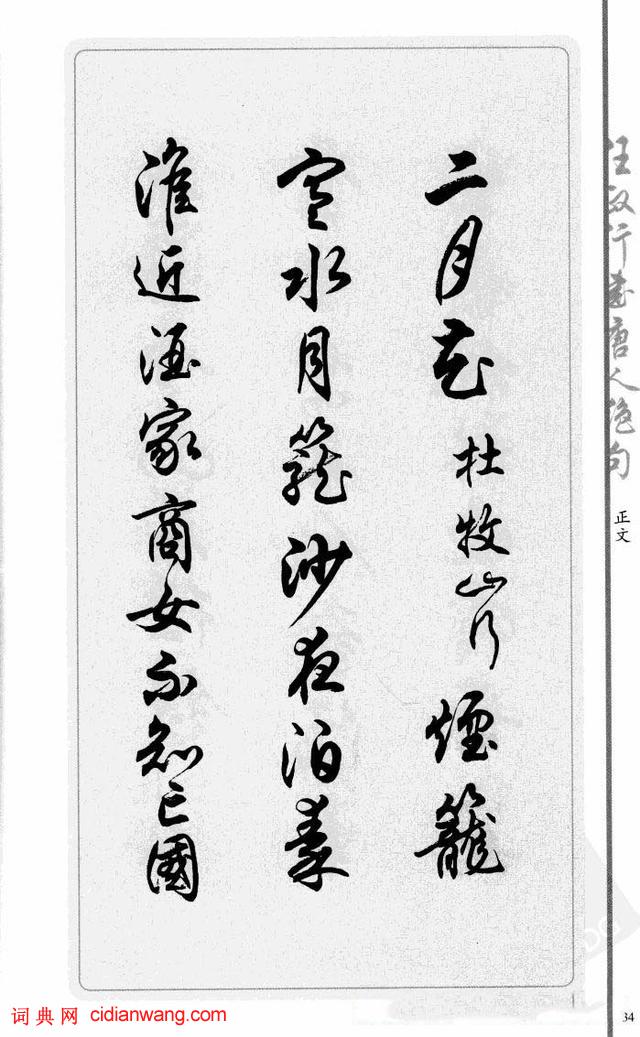 二月花 杜牧山行 煙籠
寒水月籠沙夜泊秦
淮近酒家商女不知亡國
任政行書唐人绝句
正文
34
词典网 cidianwang.com